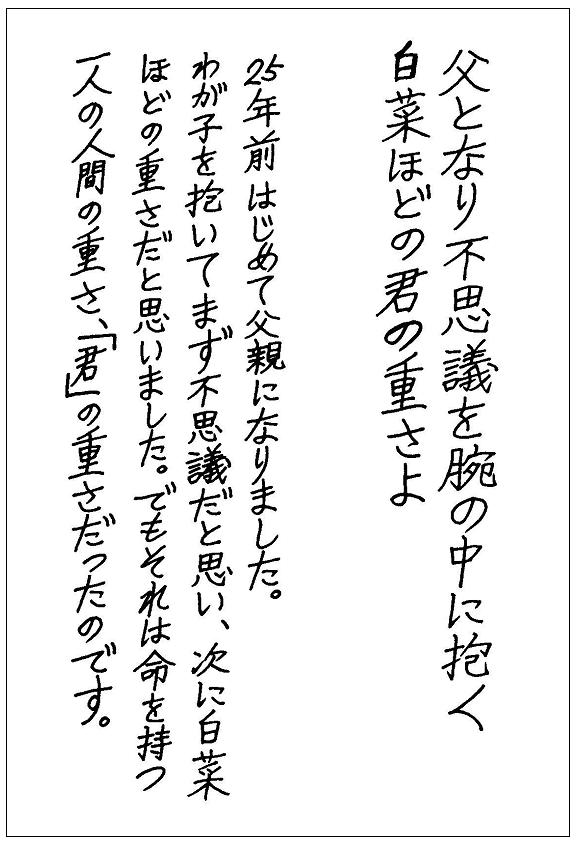 父となり不思議を腕の中に抱く
白菜ほどの君の重さよ
25年前はじめて父親になりました。
わが子を抱いてまず不思議だと思い、次に白菜
ほどの重さだと思いました。でもそれは命を持つ
一人の人間の重さ、「君」の重さだったのです。